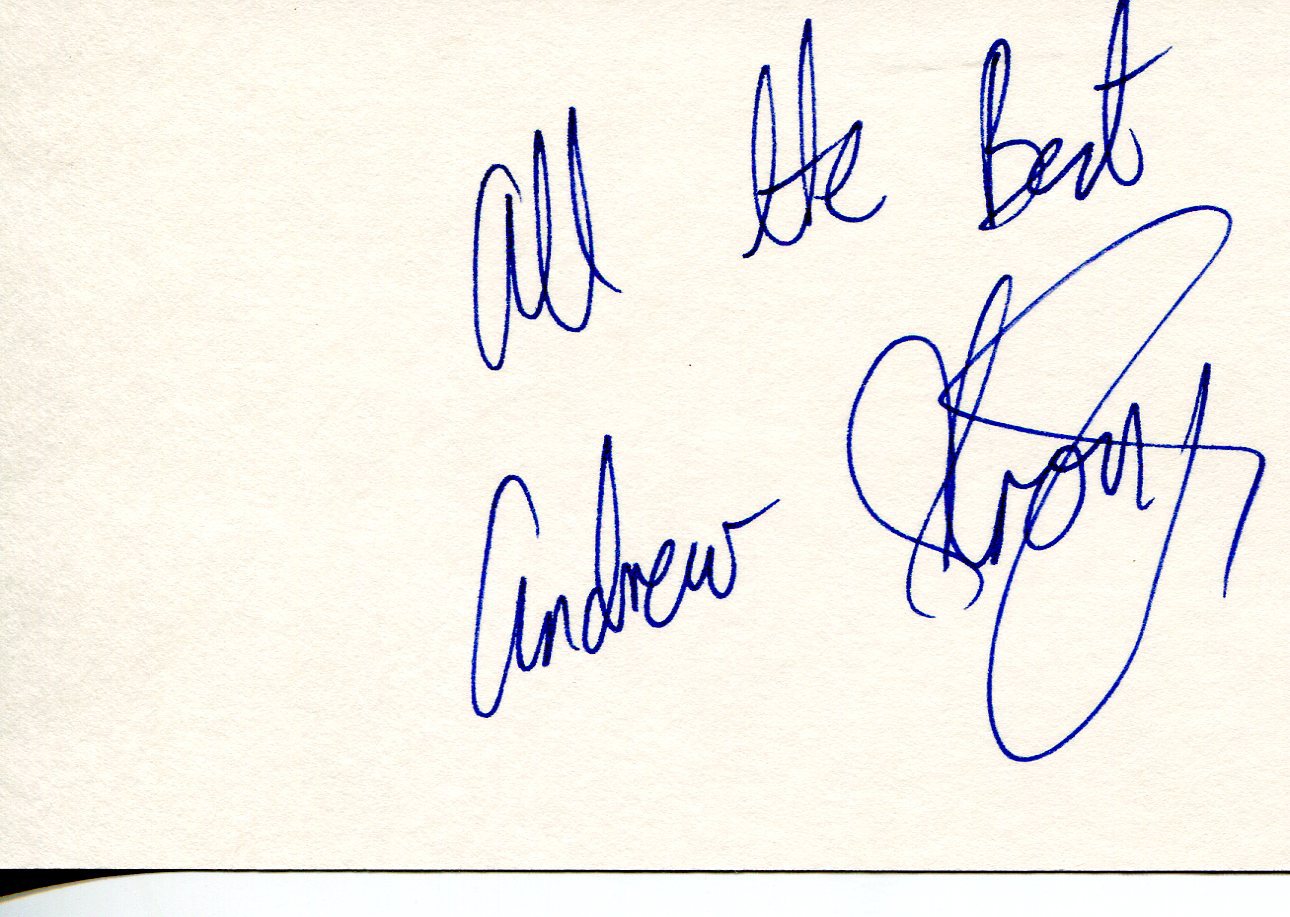 All the Best
Andrew Strong